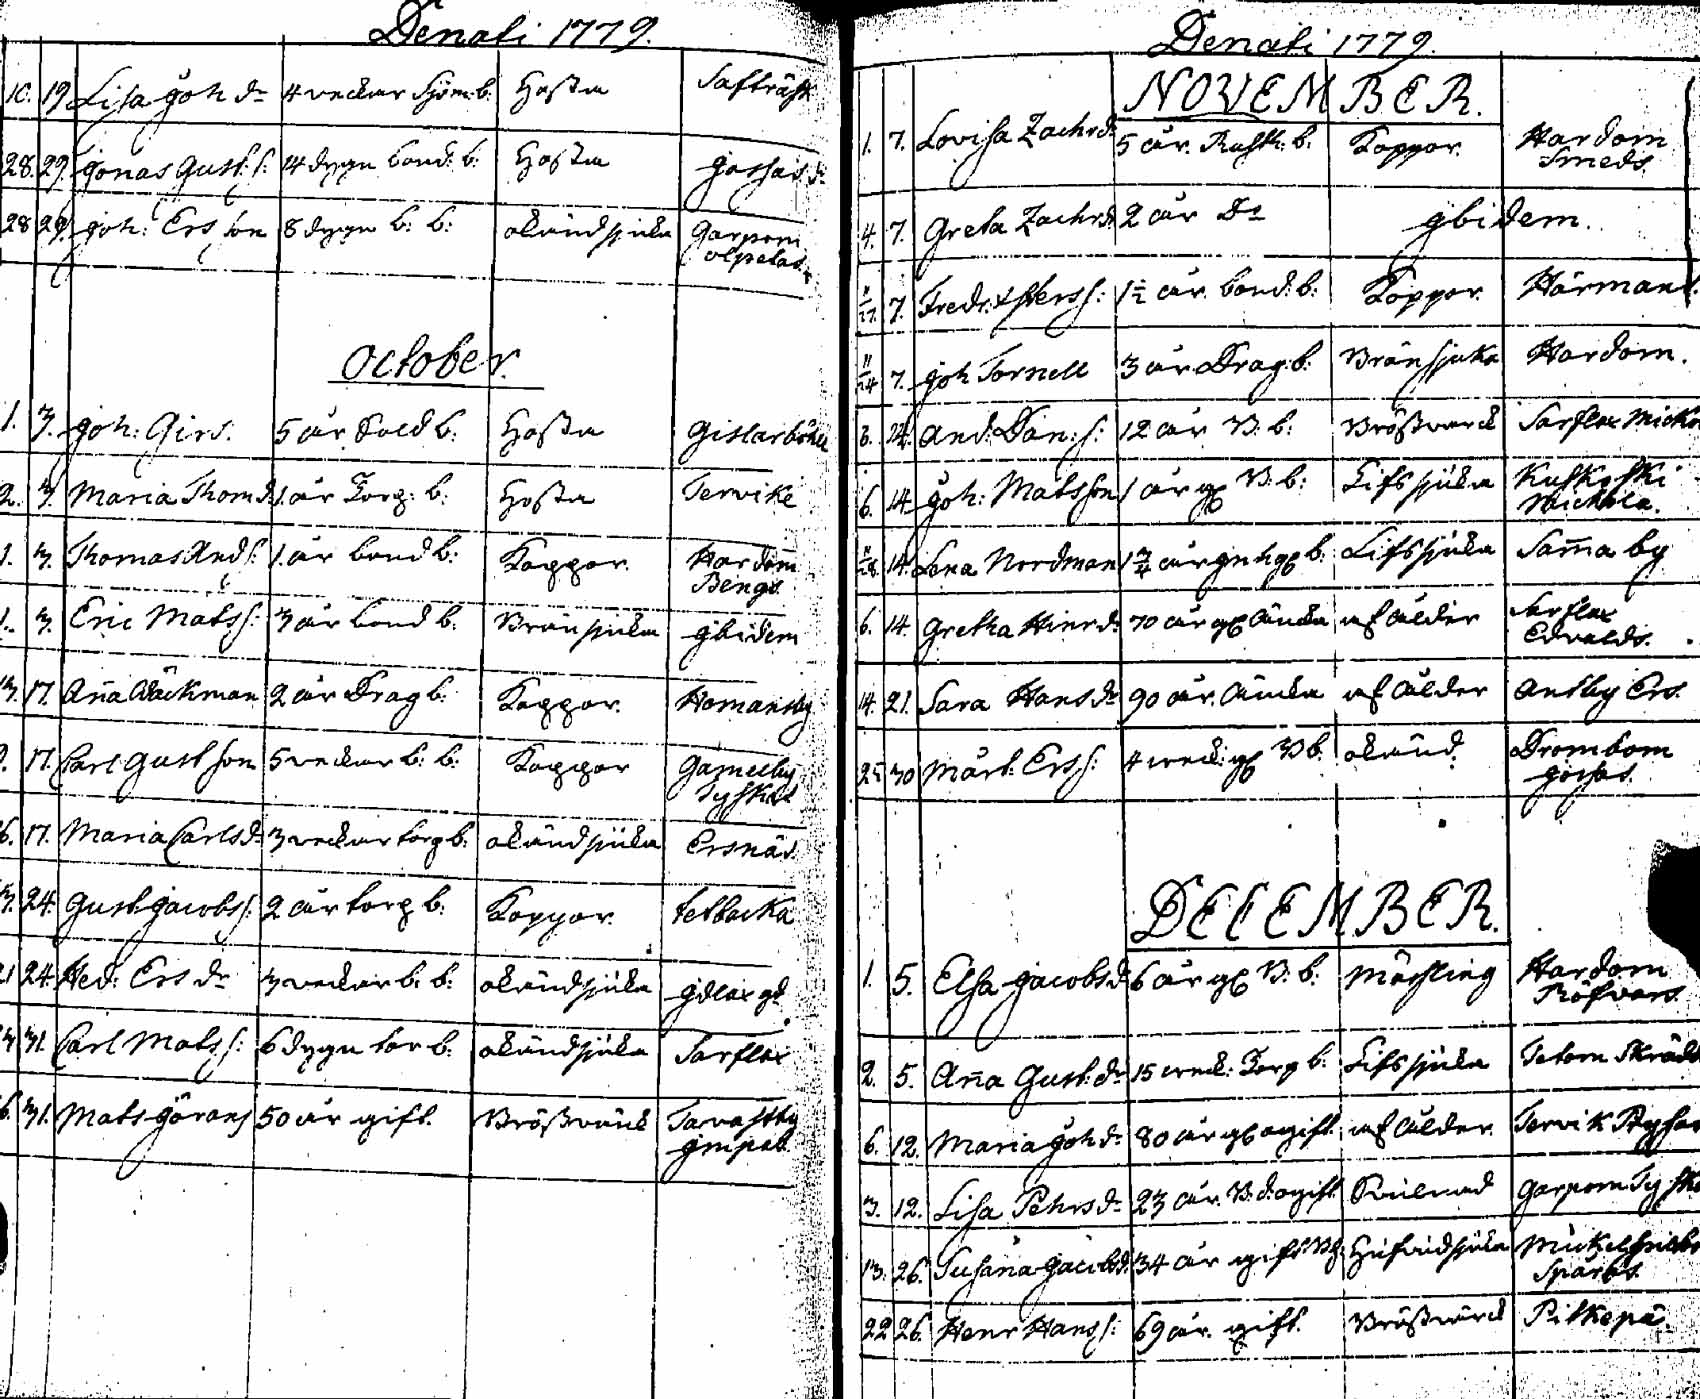 Denati 1779.
10. 19 Lisa Joh dr 4 veckor Hosta
28. 29. Jonas Gust. s: 14 dygn bond. b: Hosta
28 29. Joh: Ersson 8 dygn b: b: okänd sjuka Garpom
October.
1. 3. Joh: Girs. 5 år Sold b: Hosta Gislarböle
2. 3. Maria Thom d: 1 år Torp: b: Hosta Tervike
1. 3. Thomas And s: 1 år bond b: Koppor. Hardom
Bengs
1. 3. Eric Mats s: 3 år bond b: Brän sjuka Ibidem
17. Aña Bäckman 2 år Drag b: Koppor. Homansby
17. Carl Gustson 5 veckor b: b: Koppor Gammelby
Tyskas
6. 17. Maria Carlsd: 3 veckor torp b: okänd sjuka Ersnäs
24. Gust: Jacobs s: 2 år torp b: Koppor. Tetbacka
24. Hed: Ers dr 3 veckor b: b: okänd sjuka
31. Carl Mats s: 6 dygn tor b: okänd sjuka Sarflax
6. 31. Mats Görans 50 år gift. Bröstvärck Tavastby
Denati 1779.
NOVEMBER.
1. 7. Lovisa Zachrdr 5 år. Rusth: b. Koppor. Hardom
Smeds.
4. 7. Greta Zachrd: 2 år Do Ibidem.
11/27. 7. Fredr. 1 1/2 år. bond: b: Koppor. Härmans.
11/24 7. Joh Tornell 3 år Drag: b: Bränsjuka Hardom.
6. 14. And: Dan: s: 12 år B: b: Bröstvärck Sarflax Mickos
6. 14. Joh: Matsson 1 år B: b: Lifssjuka Kuskoski
Mickola.
14. Lena Nordman 1 3/4 år b: Lifssjuka Sam̃a by
6. 14. Gretha Hinrd: 70 år Änka af ålder Sarflax
Edvalds.
14. 21. Sara Hansdr 90 år. Änka af Ålder Antby Ers.
25 30 Märt: Ers s: 4 veck: B b. okänd. Drombom
DECEMBER.
1. 5. Elsa Jacobsd: 6 år B: b. Mässling Hardom
Röfvars.
2. 5. Aña Gust: dr 15 veck: Torp b: Lifssjuka Tetom Skrädd
6. 12. Maria Joh dr 80 år ogift af Ålder. Tervik
3. 12. Lisa Pehrs dr 23 år. B: d. ogift Garpom Tyska
13. 26. Susãna Jacobsd: 34 år gift Hufvudsjuka
Sparfs.
22 26. Henr Hans s: 69 år. gift. Bröstvärck Pitkepä.